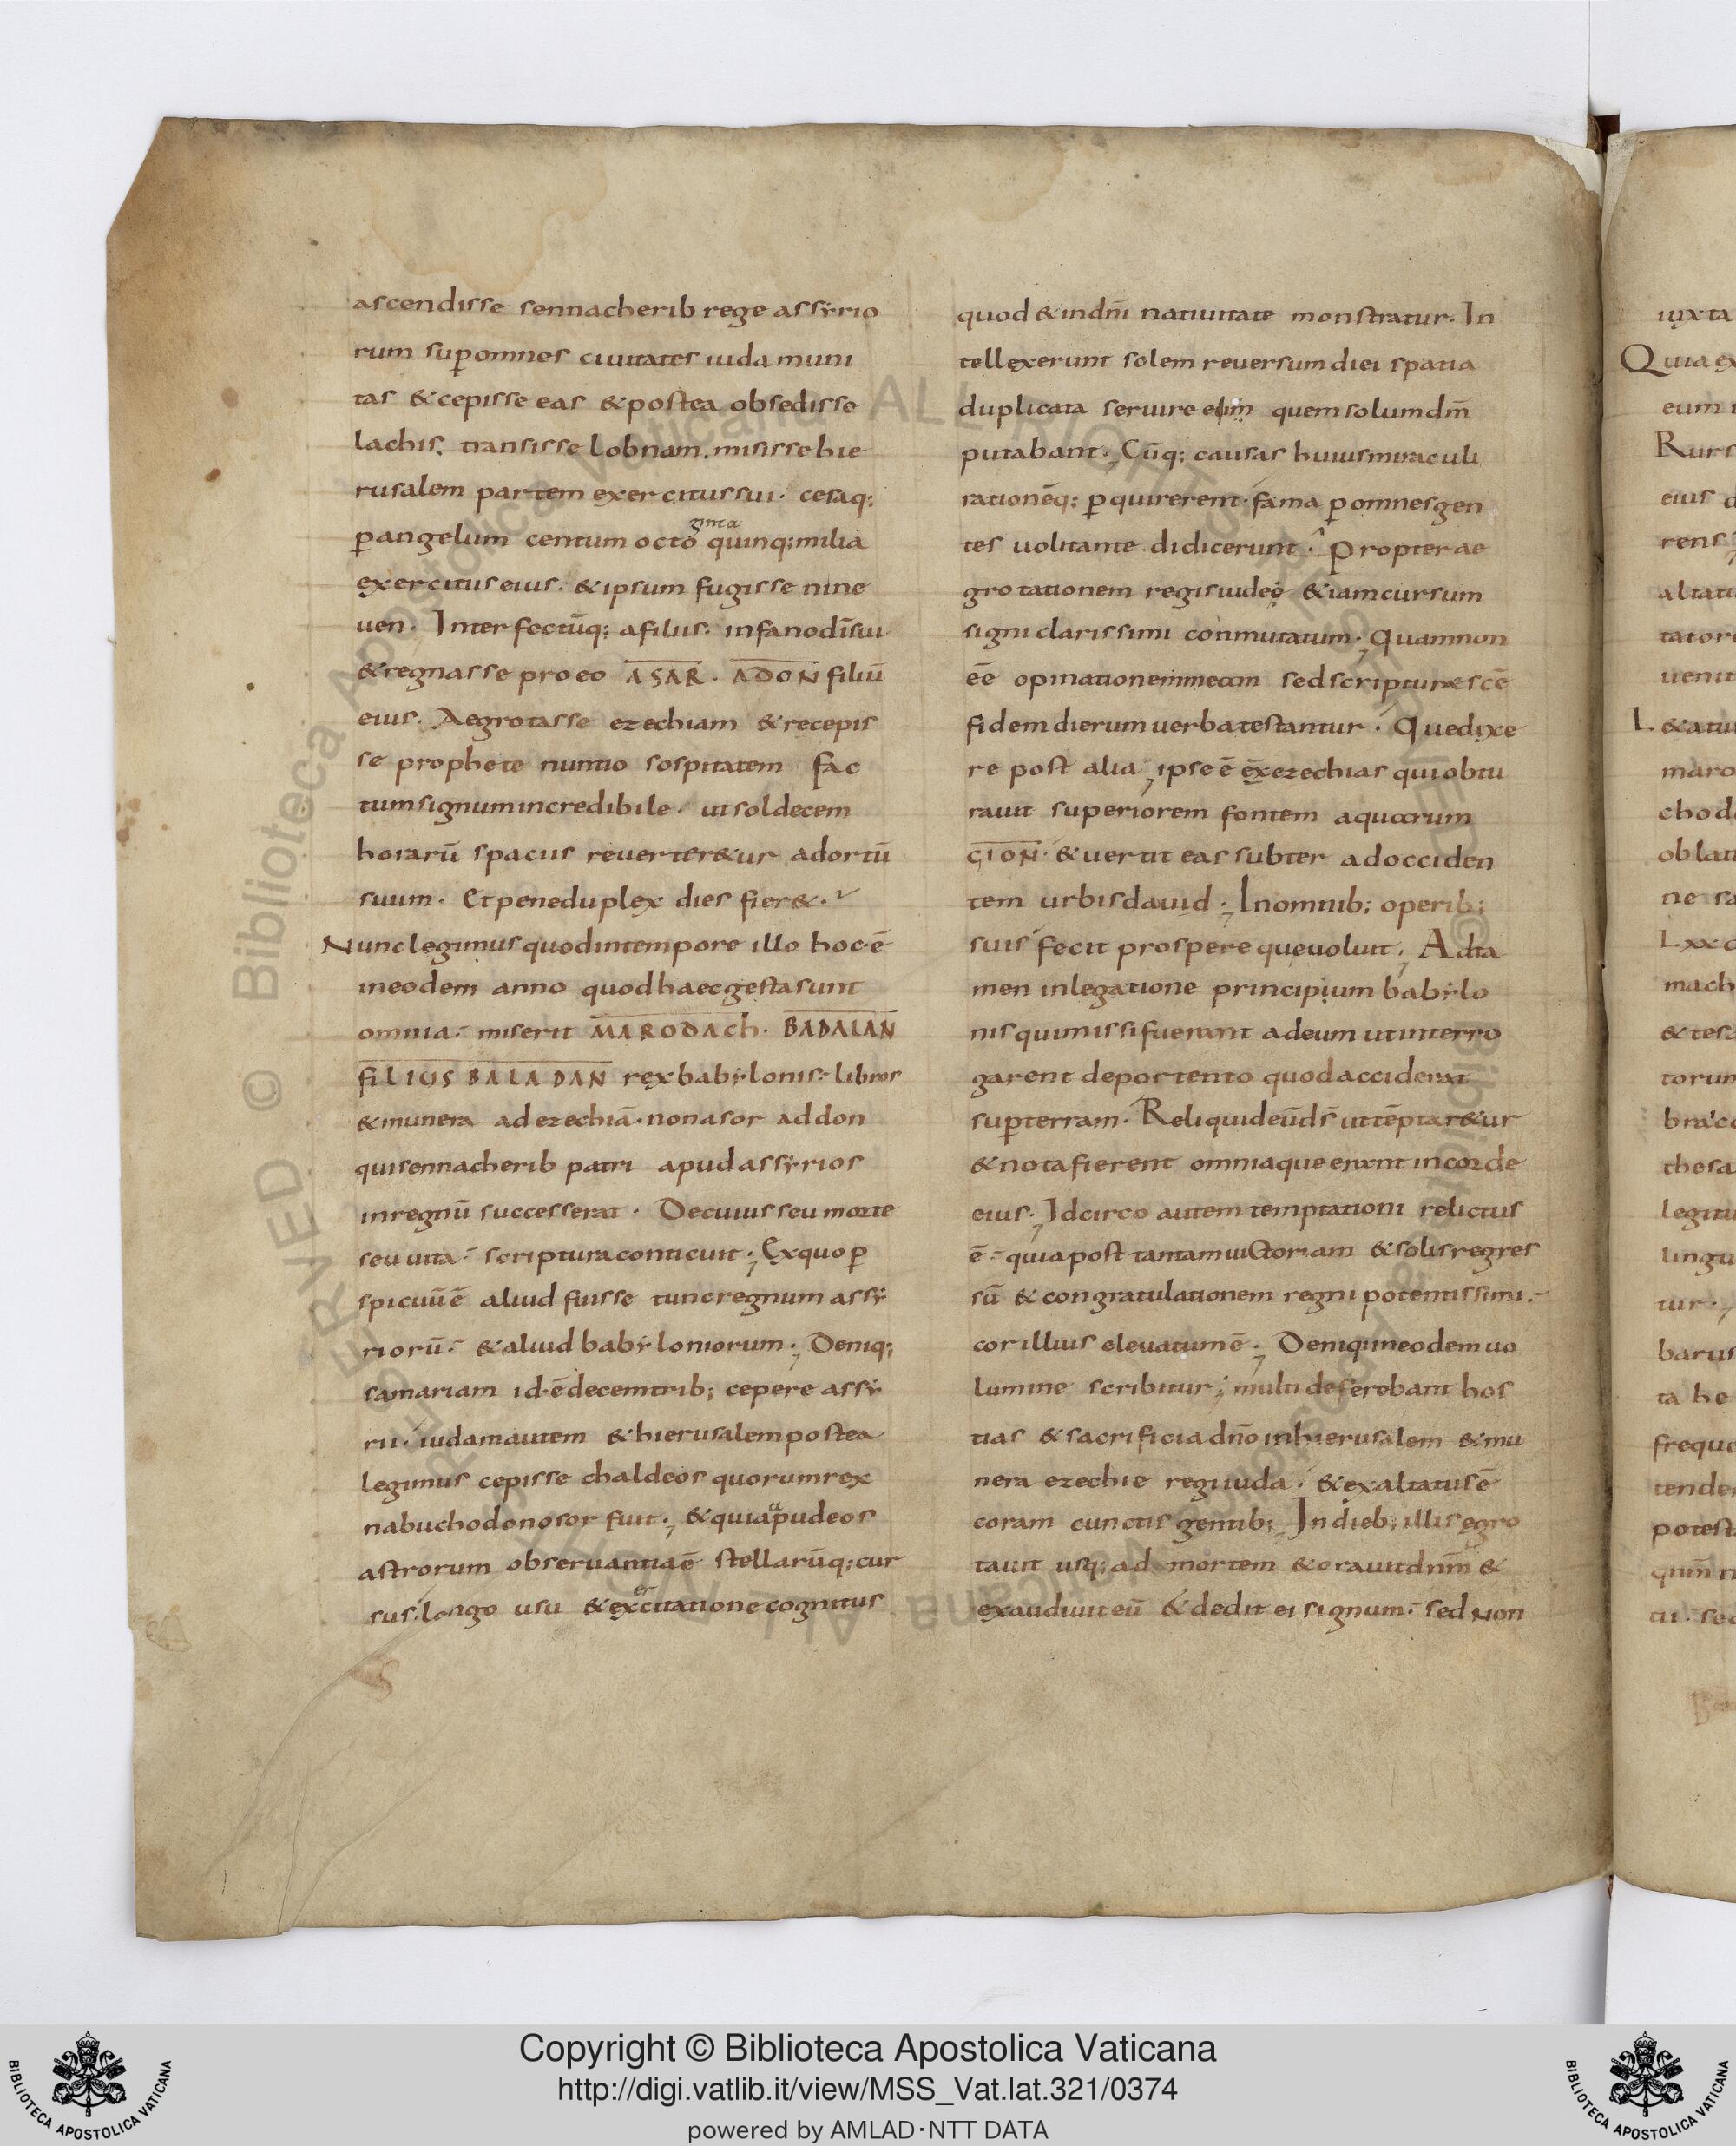 ascendisse sennacherib rege assyrio
rum sup omnes ciuitates iuda muni
tas & cepisse eas & postea obsedisse
lachis. transisse lobnam. misisse hie
rusalem partem exercitus sui. cesaq;
p angelum centum octo ginta quinq; milia
exercitus eius. & ipsum fugisse nine
uen. Interfectūq; a filiis. in fano dī sui
& regnasse pro eo ASAR. ADON filiū
eius. Aegrotasse ezechiam & recepis
se prophete nuntio sospitatem fac
tum signum incredibile. ut sol decem
horarū spaciis reuerter&ur ad ortū
suum. Et pene duplex dies fier&.
Nunc legimus quod in tempore illo hoc ē
in eodem anno quod haec gesta sunt
omnia. miserit MARODACh. BADALAN
FILIUS BALADAN rex babylonis. libros
& munera ad ezechiā. non asor addon
qui sennacherib patri apud assyrios
in regnū successerat. De cuius seu morte
seu uita. scriptura conticuit. Ex quo p
spicuū ē aliud fuisse tunc regnum assy
riorū. & aliud babyloniorum. Deniq;
samariam id ē decem trib; cepere assy
rii. iudam autem & hierusalem postea
legimus cepisse chaldeos quorum rex
nabuchodonosor fuit. & quia apud eos
astrorum obseruantia ē stellarūq; cur
sus. longo usu & exercitatione cognitus
quod & in dnī natiuitate monstratur. In
tellexerunt solem reuersum diei spatia
duplicata seruire ei quem solum dm̄
putabant. Cūq; causas huius miraculi
rationēq; pquirerent. fama p omnes gen
tes uolitante didicerunt. Propter ae
grotationem regis iudeę & iam cursum
signi clarissimi conmutatum. Quam non
ēē opinationem meam sed scripturæ scē
fidem dierum uerba testantur. Que dixe
re post alia, ipse ē ezechias qui obtu
rauit superiorem fontem aquarum
GION. & uertit eas subter ad occiden
tem urbis dauid. In omnib; operib;
suis fecit prospere que uoluit. Atta
men in legatione principium babylo
nis qui missi fuerant ad eum ut interro
garent de portento quod acciderat
sup terram. Reliquid eū ds̄ ut tēptar&ur
& nota fierent omnia que erant in corde
eius. Idcirco autem temptationi relictus
ē. quia post tantam uictoriam & solis regres
sū & congratulationem regni potentissimi.
cor illius eleuatum ē. Deniq; in eodem uo
lumine scribitur; multi deferebant hos
tias & sacrificia dno in hierusalem & mu
nera ezechie regi iuda. & exaltatus ē
coram cunctis gentib; In dieb; illis egro
tauit usq; ad mortem & orauit dnm̄ &
exaudiuit eū & dedit ei signum. sed non
iuxta
Quia ex
eum
Rurs
eius
rens
altati
tator
uenit
L &atu
maro
chod
oblati
ne sa
Lxx
mach
& tes
torum
thesa
legitu
lingu
tur.
barus
ta he
freque
tende
potest
© Biblioteca Apostolica Vaticana ALL RIGHTS RESERVED
Copyright © Biblioteca Apostolica Vaticana
http://digi.vatlib.it/view/MSS_Vat.lat.321/0374
powered by AMLAD·NTT DATA
BIBLIOTECA APOSTOLICA VATICANA
BIBLIOTECA APOSTOLICA VATICANA